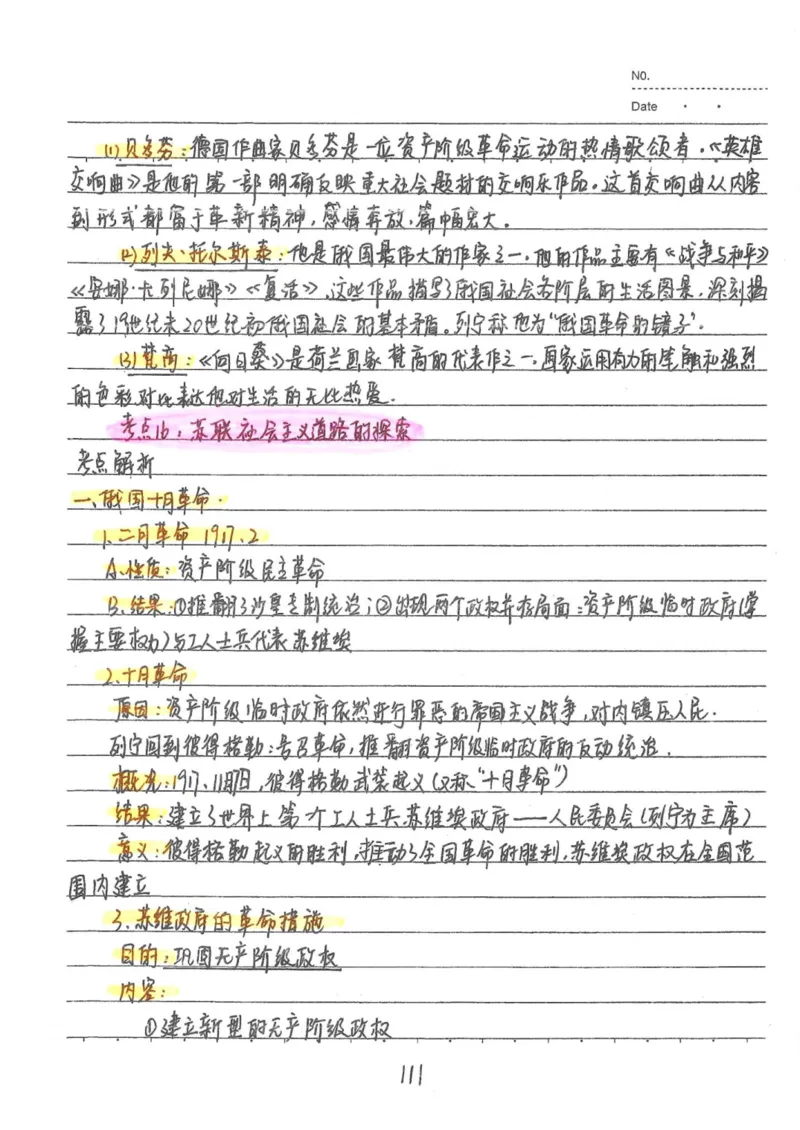 No.
Date
(1)贝多芬:德国作曲家贝多芬是一位资产阶级革命运动的热情歌颂者.《英雄
交响曲》是他的第一部明确反映重大社会题材的交响乐作品。这首交响曲从内容
到形式都富于革新精神,感情奔放,篇幅宏大。
(2)列夫·托尔斯泰:他是俄国最伟大的作家之一.他的作品主要有《战争与和平》
《安娜·卡列尼娜》《复活》,这些作品描写了俄国社会各阶层的生活图景.深刻揭
露了19世纪末20世纪初俄国社会的基本矛盾。列宁称他为“俄国革命的镜子”.
(3)梵高:《向日葵》是荷兰画家梵高的代表作之一.画家运用有力的笔触和强烈
的色彩对比表达他对生活的无比热爱.
考点16:苏联社会主义道路的探索
考点解析
一、俄国十月革命.
1.二月革命 1917.2
A.性质:资产阶级民主革命
B.结果:①推翻了沙皇专制统治;②出现两个政权并存局面:资产阶级临时政府(掌
握主要权力)与工人士兵代表苏维埃
2.十月革命
原因:资产阶级临时政府依然进行罪恶的帝国主义战争,对内镇压人民.
列宁回到彼得格勒:号召革命,推翻资产阶级临时政府的反动统治.
概况:1917.11月7日,彼得格勒武装起义(又称“十月革命”)
结果:建立了世界上第一个工人士兵苏维埃政府——人民委员会(列宁为主席)
意义:彼得格勒起义的胜利,推动了全国革命的胜利,苏维埃政权在全国范
围内建立
3.苏维政府的革命措施
目的:巩固无产阶级政权
内容:
①建立新型的无产阶级政权
111